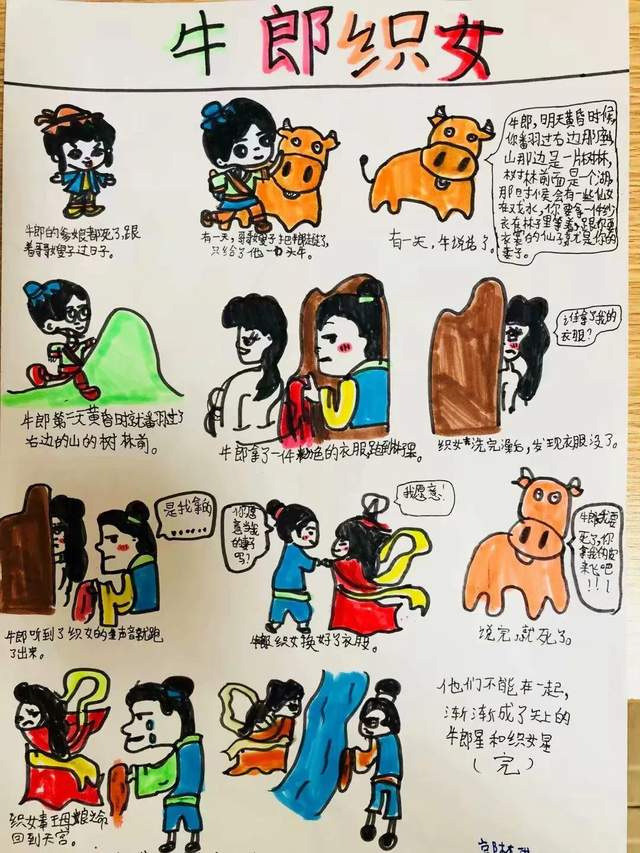 牛郎织女
牛郎的爹娘都死了,跟
着哥哥嫂子过日子。
有一天,哥哥嫂子把
只给了他一头牛。
有一天,牛说话了。
牛郎,明天黄昏时候,
你翻过右边那
山那边是一片树林,
树林前面是一个湖
那时候会有一些仙女
在 水,你要拿一件
衣在林子里等着,跟你要
衣裳的仙子就是你的
妻子。
牛郎第二天黄昏时就翻过了
右边的山的树林前。
牛郎拿了一件粉色的衣服,跑到树林里。
谁拿了我的
衣服?
织女洗完澡后,发现衣服没了。
是我拿的
……
牛郎听到了织女的声音就跑
了出来。
你愿
意当我
的妻子
吗?
我愿意!
牛郎织女换好了衣服。
牛郎我要
死了,你
拿我的皮
来飞吧
!!!
说完,就死了。
织女奉王母娘之命
回到天宫。
他们不能在一起,
渐渐成了天上的
牛郎星和织女星
(完)